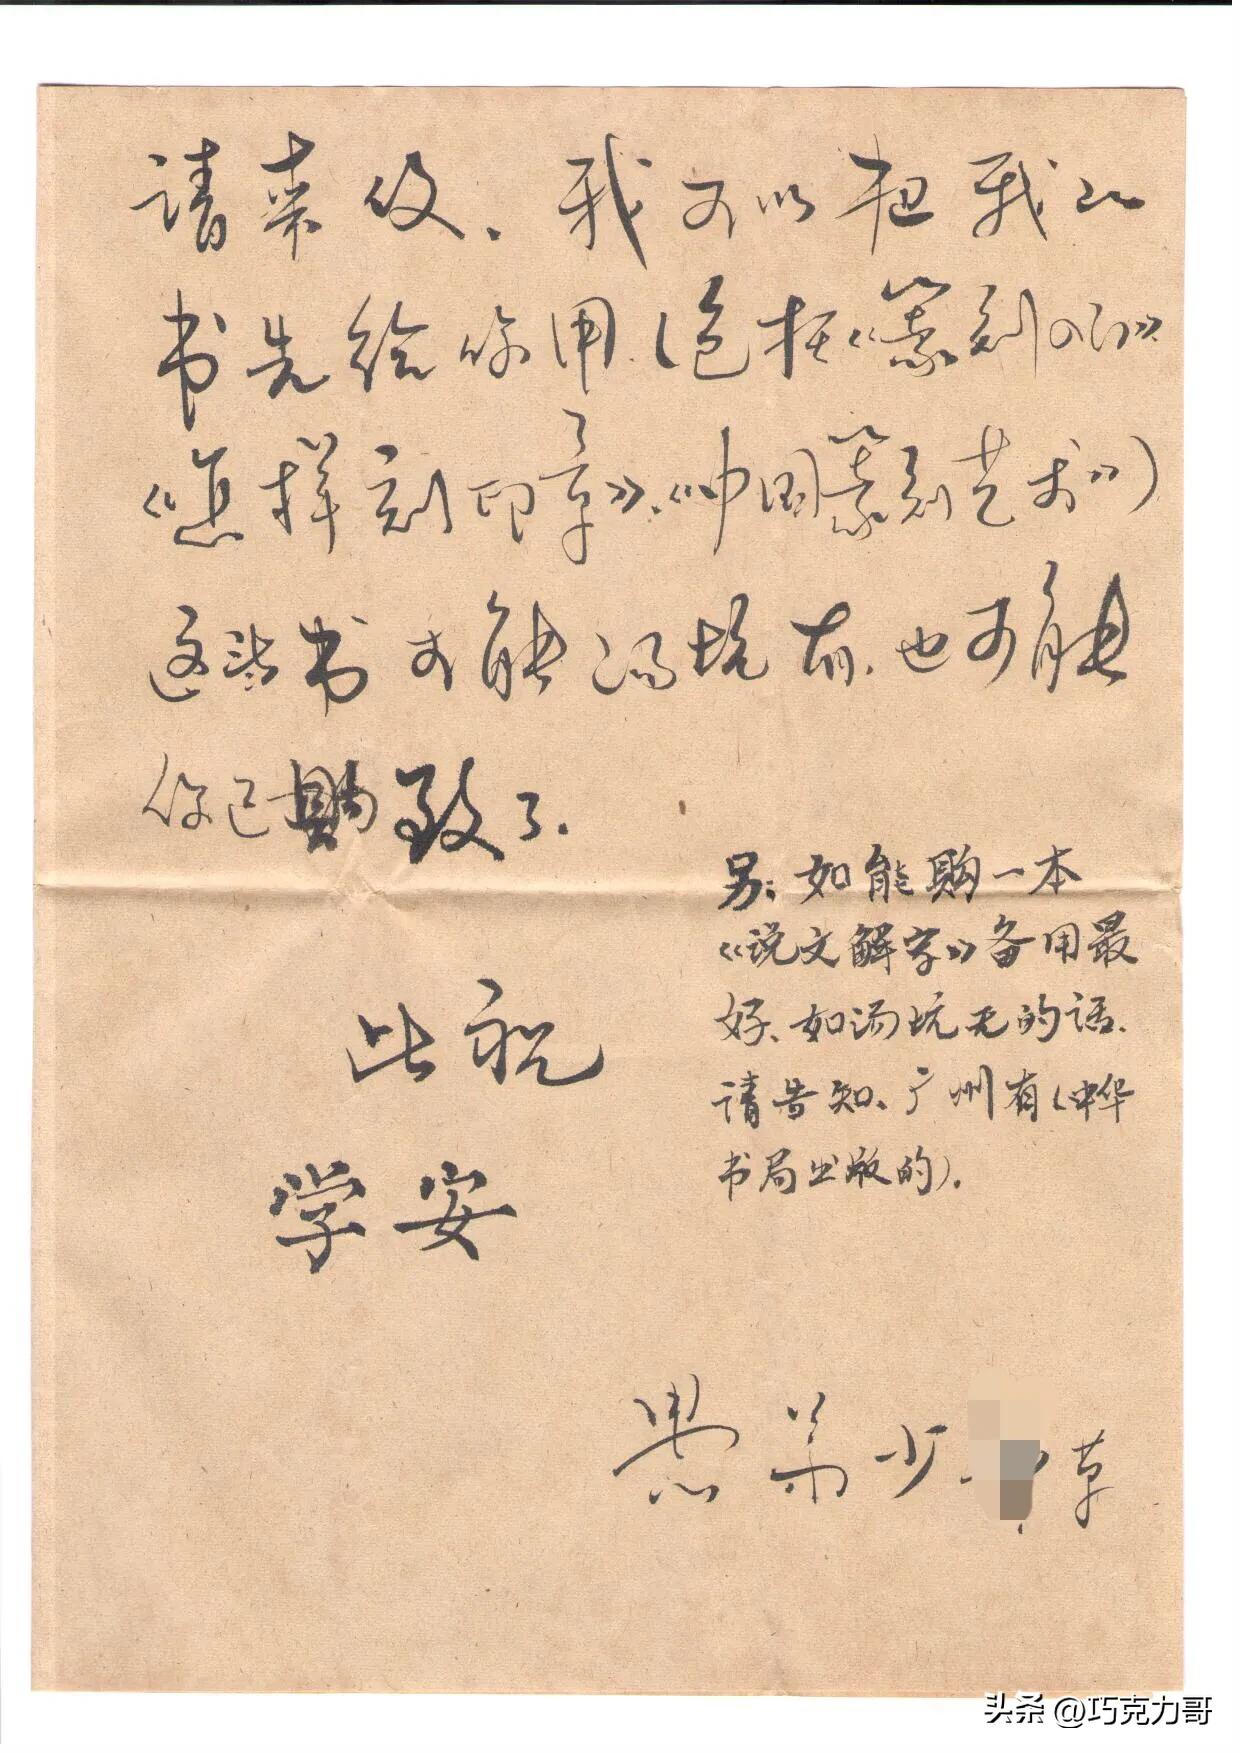 请来伩、我可以把我的
书先给你用（包括《篆刻》、
《怎样刻印章》、《中国篆刻艺术》）
这些书可能汤坑有、也可能
你已购致了.
此祝
学安
另：如能购一本
《说文解字》备用最
好、如汤坑无的话、
请告知、广州有（中华
书局出版的）.
愚弟少 草
头条 @巧克力哥